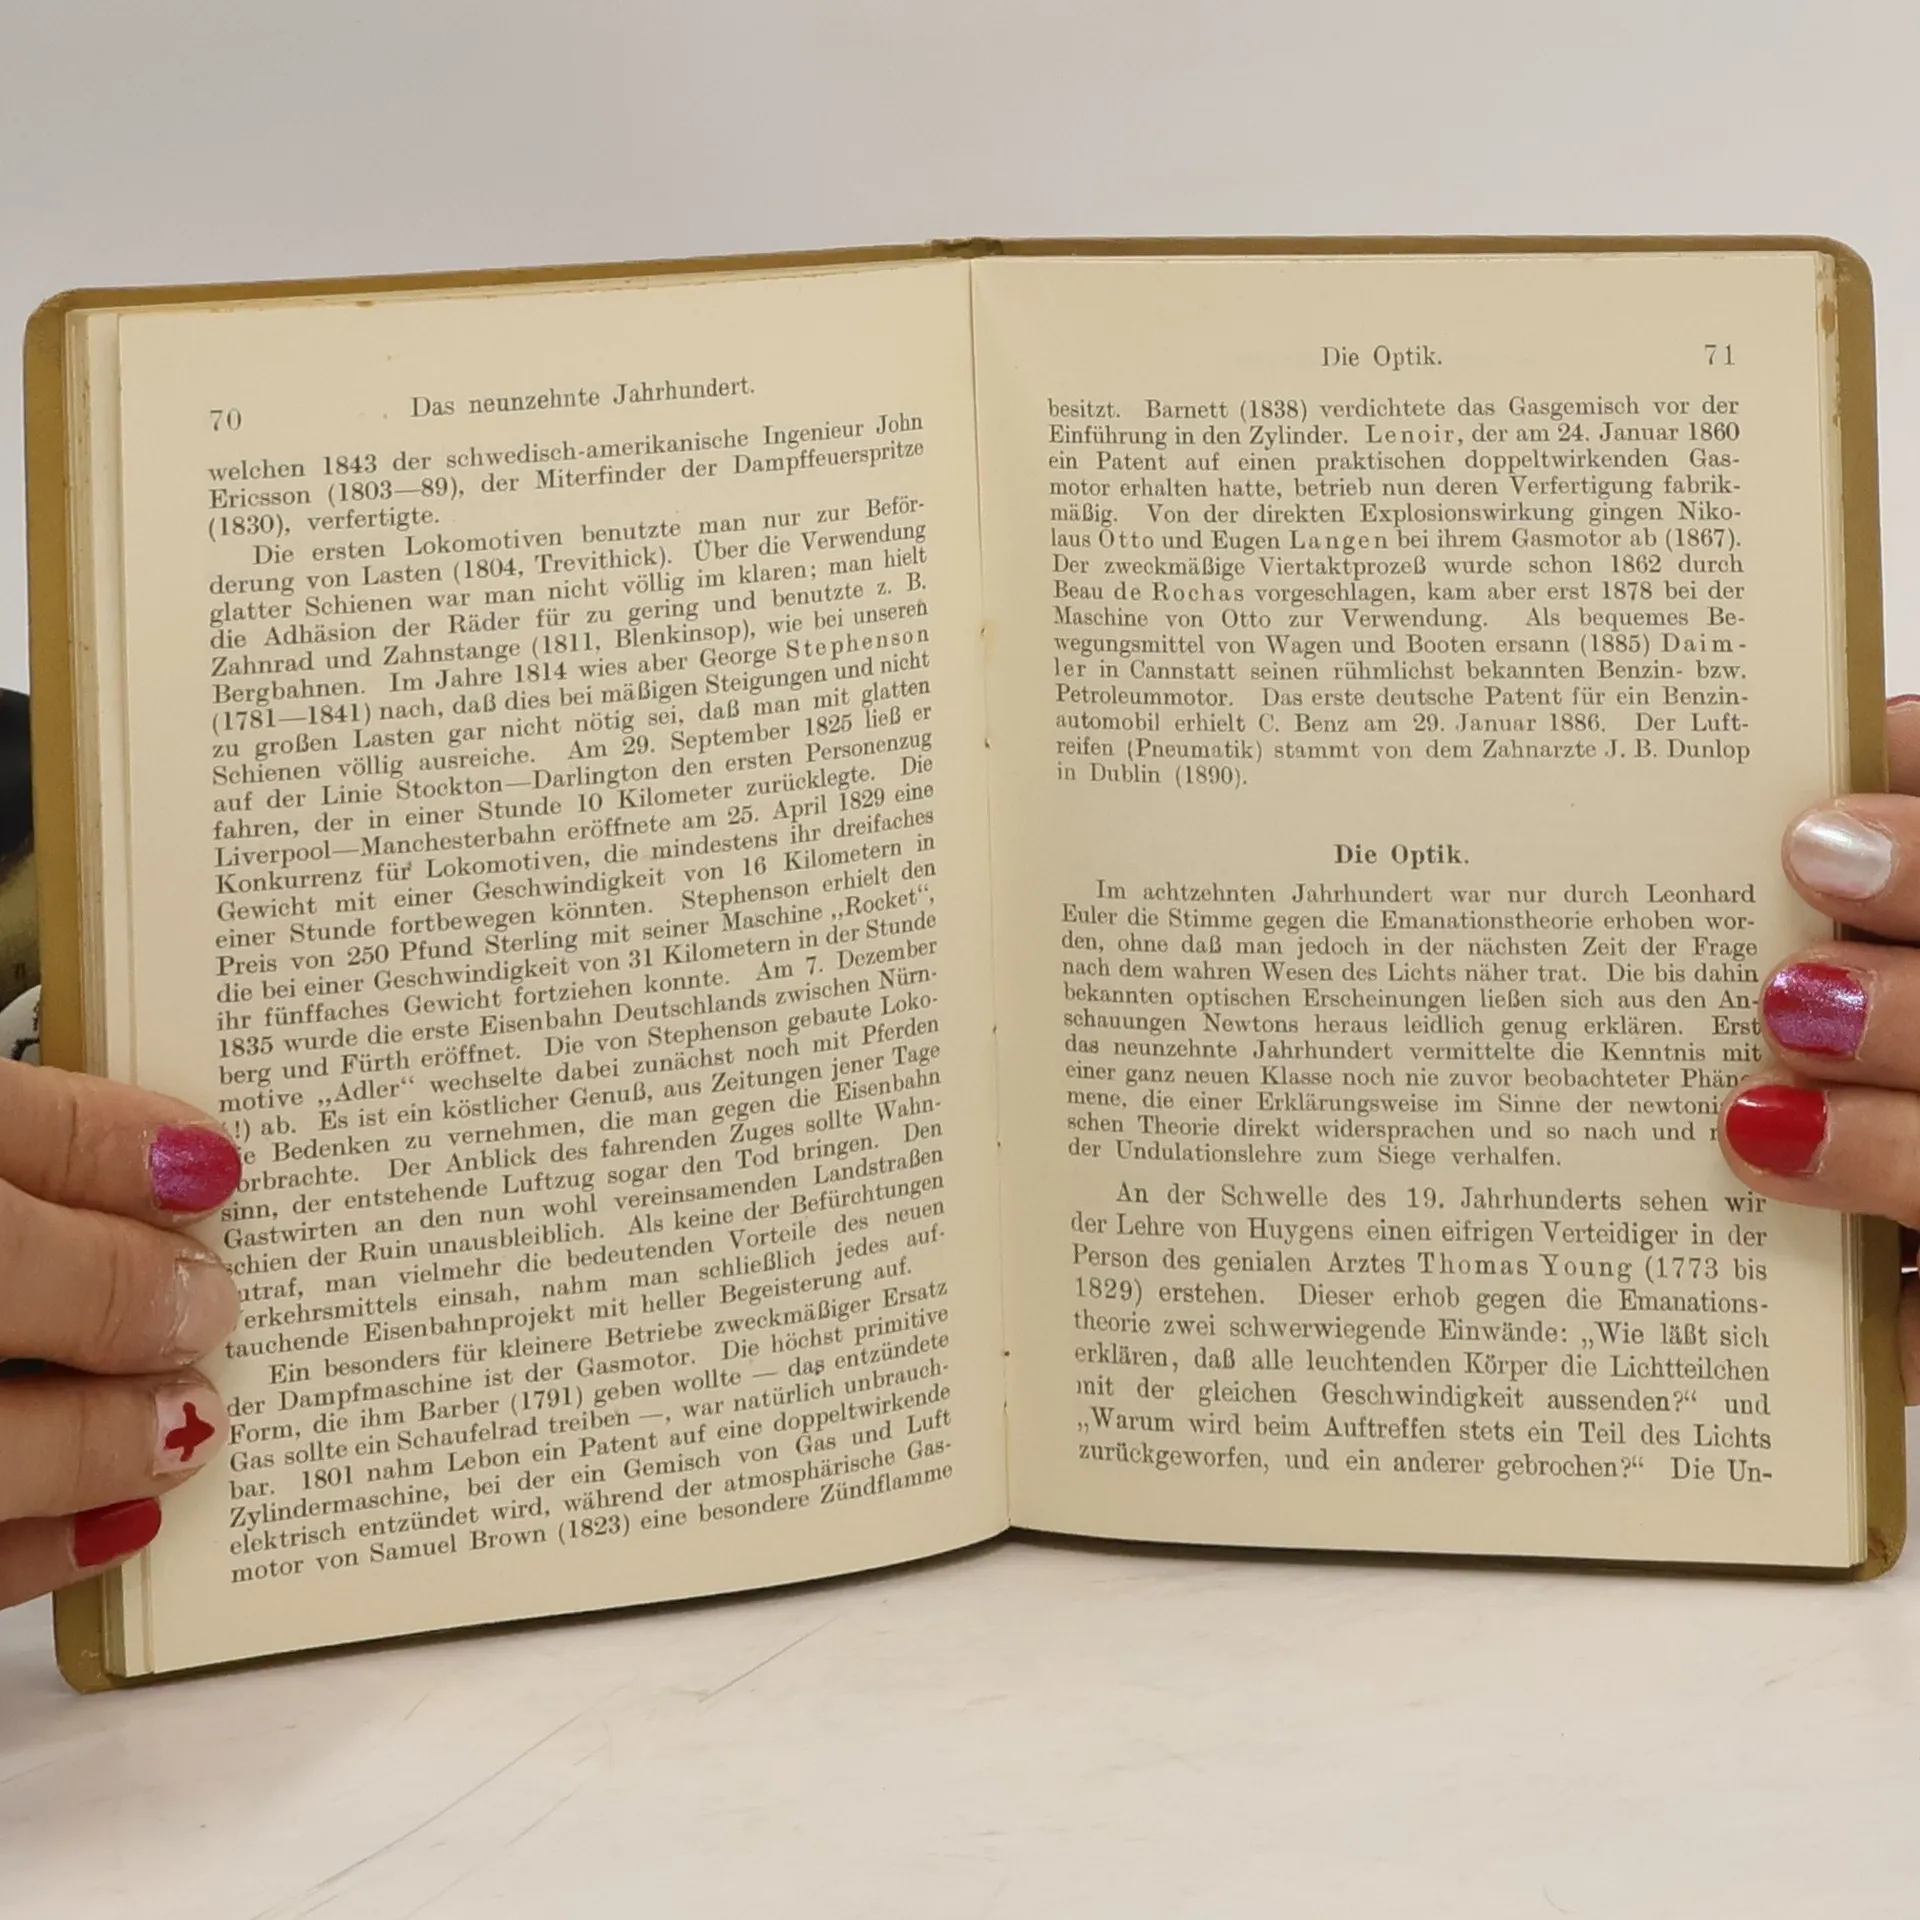 70 Das neunzehnte Jahrhundert.
welchen 1843 der schwedisch-amerikanische Ingenieur John
Ericsson (1803—89), der Miterfinder der Dampffeuerspritze
(1830), verfertigte.
Die ersten Lokomotiven benutzte man nur zur Beför-
derung von Lasten (1804, Trevithick). Über die Verwendung
glatter Schienen war man nicht völlig im klaren; man hielt
die Adhäsion der Räder für zu gering und benutzte z. B.
Zahnrad und Zahnstange (1811, Blenkinsop), wie bei unseren
Bergbahnen. Im Jahre 1814 wies aber George Stephenson
(1781—1841) nach, daß dies bei mäßigen Steigungen und nicht
zu großen Lasten gar nicht nötig sei, daß man mit glatten
Schienen völlig ausreiche. Am 29. September 1825 ließ er
auf der Linie Stockton—Darlington den ersten Personenzug
fahren, der in einer Stunde 10 Kilometer zurücklegte. Die
Liverpool—Manchesterbahn eröffnete am 25. April 1829 eine
Konkurrenz für Lokomotiven, die mindestens ihr dreifaches
Gewicht mit einer Geschwindigkeit von 16 Kilometern in
einer Stunde fortbewegen könnten. Stephenson erhielt den
Preis von 250 Pfund Sterling mit seiner Maschine „Rocket“,
die bei einer Geschwindigkeit von 31 Kilometern in der Stunde
ihr fünffaches Gewicht fortziehen konnte. Am 7. Dezember
1835 wurde die erste Eisenbahn Deutschlands zwischen Nürn-
berg und Fürth eröffnet. Die von Stephenson gebaute Loko-
motive „Adler“ wechselte dabei zunächst noch mit Pferden
(!) ab. Es ist ein köstlicher Genuß, aus Zeitungen jener Tage
Bedenken zu vernehmen, die man gegen die Eisenbahn
vorbrachte. Der Anblick des fahrenden Zuges sollte Wahn-
sinn, der entstehende Luftzug sogar den Tod bringen. Den
Gastwirten an den nun wohl vereinsamenden Landstraßen
schien der Ruin unausbleiblich. Als keine der Befürchtungen
zutraf, man vielmehr die bedeutenden Vorteile des neuen
Verkehrsmittels einsah, nahm man schließlich jedes auf-
tauchende Eisenbahnprojekt mit heller Begeisterung auf.
Ein besonders für kleinere Betriebe zweckmäßiger Ersatz
der Dampfmaschine ist der Gasmotor. Die höchst primitive
Form, die ihm Barber (1791) geben wollte — das entzündete
Gas sollte ein Schaufelrad treiben —, war natürlich unbrauch-
bar. 1801 nahm Lebon ein Patent auf eine doppeltwirkende
Zylindermaschine, bei der ein Gemisch von Gas und Luft
elektrisch entzündet wird, während der atmosphärische Gas-
motor von Samuel Brown (1823) eine besondere Zündflamme
Die Optik. 71
besitzt. Barnett (1838) verdichtete das Gasgemisch vor der
Einführung in den Zylinder. Lenoir, der am 24. Januar 1860
ein Patent auf einen praktischen doppeltwirkenden Gas-
motor erhalten hatte, betrieb nun deren Verfertigung fabrik-
mäßig. Von der direkten Explosionswirkung gingen Niko-
laus Otto und Eugen Langen bei ihrem Gasmotor ab (1867).
Der zweckmäßige Viertaktprozeß wurde schon 1862 durch
Beau de Rochas vorgeschlagen, kam aber erst 1878 bei der
Maschine von Otto zur Verwendung. Als bequemes Be-
wegungsmittel von Wagen und Booten ersann (1885) Daim-
ler in Cannstatt seinen rühmlichst bekannten Benzin- bzw.
Petroleummotor. Das erste deutsche Patent für ein Benzin-
automobil erhielt C. Benz am 29. Januar 1886. Der Luft-
reifen (Pneumatik) stammt von dem Zahnarzte J. B. Dunlop
in Dublin (1890).
Die Optik.
Im achtzehnten Jahrhundert war nur durch Leonhard
Euler die Stimme gegen die Emanationstheorie erhoben wor-
den, ohne daß man jedoch in der nächsten Zeit der Frage
nach dem wahren Wesen des Lichts näher trat. Die bis dahin
bekannten optischen Erscheinungen ließen sich aus den An-
schauungen Newtons heraus leidlich genug erklären. Erst
das neunzehnte Jahrhundert vermittelte die Kenntnis mit
einer ganz neuen Klasse noch nie zuvor beobachteter Phäno-
mene, die einer Erklärungsweise im Sinne der newtoni-
schen Theorie direkt widersprachen und so nach und
der Undulationslehre zum Siege verhalfen.
An der Schwelle des 19. Jahrhunderts sehen wir
der Lehre von Huygens einen eifrigen Verteidiger in der
Person des genialen Arztes Thomas Young (1773 bis
1829) erstehen. Dieser erhob gegen die Emanations-
theorie zwei schwerwiegende Einwände: „Wie läßt sich
erklären, daß alle leuchtenden Körper die Lichtteilchen
mit der gleichen Geschwindigkeit aussenden?“ und
„Warum wird beim Auftreffen stets ein Teil des Lichts
zurückgeworfen, und ein anderer gebrochen?“ Die Un-